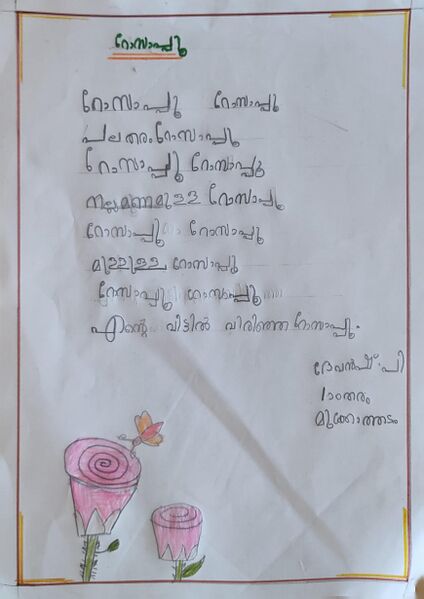 റോസാപ്പൂ
റോസാപ്പൂ റോസാപ്പൂ
പലതരം റോസാപ്പൂ
റോസാപ്പൂ റോസാപ്പൂ
നല്ലമണമുള്ള റോസാപ്പൂ
റോസാപ്പൂ റോസാപ്പൂ
മുള്ളുള്ള റോസാപ്പൂ
റോസാപ്പൂ റോസാപ്പൂ
എന്റെ വീട്ടിൽ വിരിഞ്ഞ റോസാപ്പൂ.
ദേവൻഷ് പി
1ാംതരം